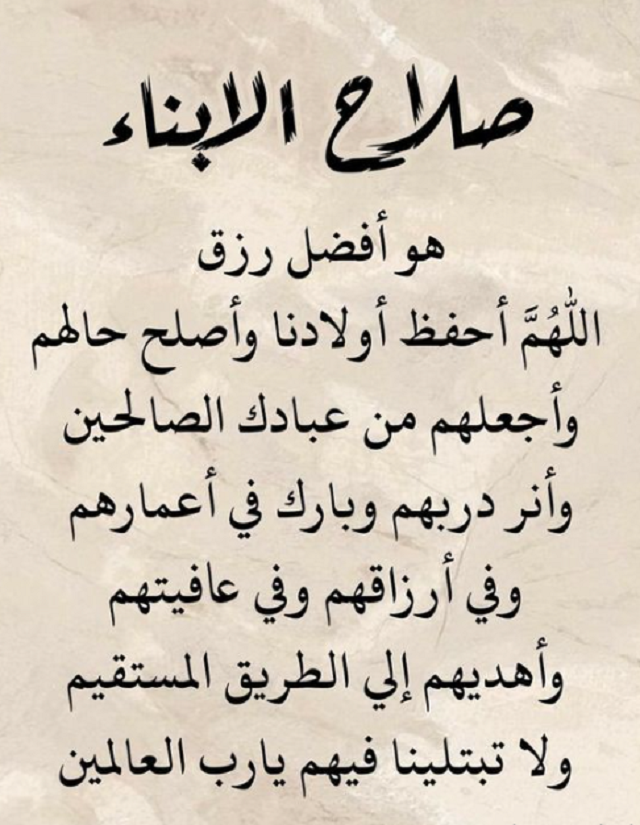 صلاح الابناء
هو أفضل رزق
اللهُمَّ أحفظ أولادنا وأصلح حالهم
وأجعلهم من عبادك الصالحين
وأنر دربهم وبارك في أعمارهم
وفي أرزاقهم وفي عافيتهم
وأهديهم إلي الطريق المستقيم
ولا تبتلينا فيهم يارب العالمين